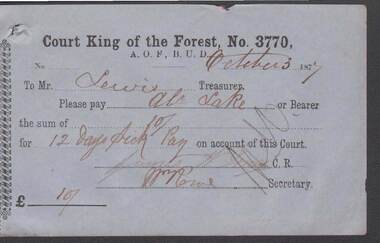 Court King of the Forest, No. 3770,
A. O. F., B. U. D.
No. October 3 1877
To Mr. Lewis Treasurer.
Please pay Ab. Lake or Bearer
the sum of 10/
for 12 Days Sick Pay on account of this Court.
C. R.
Wm Rowe Secretary.
£ 10/